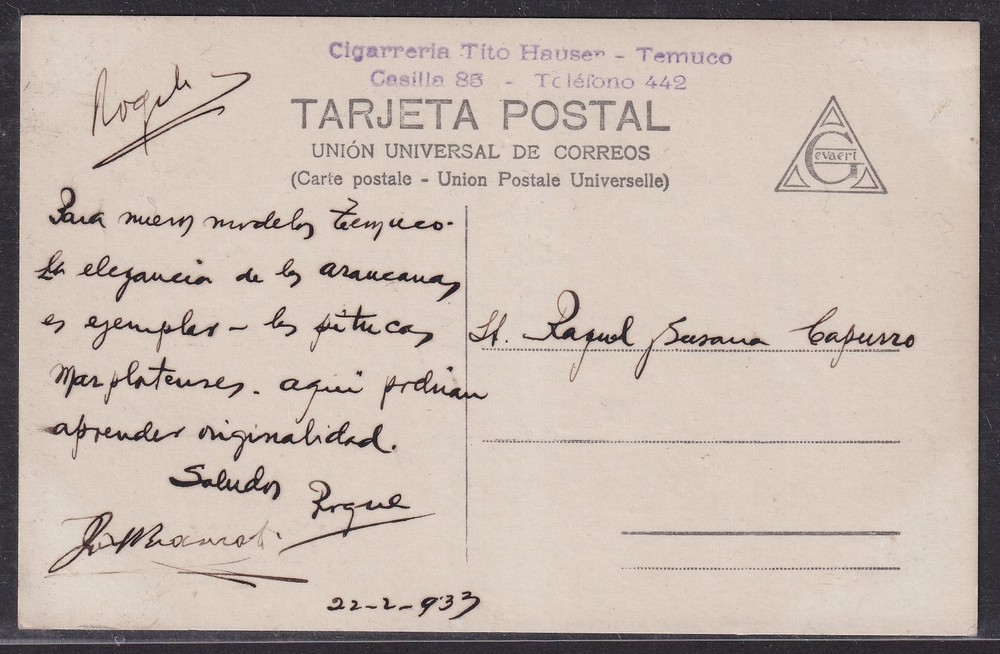 Cigarreria Tito Hauser - Temuco
Casilla 85 - Teléfono 442
TARJETA POSTAL
UNIÓN UNIVERSAL DE CORREOS
(Carte postale - Union Postale Universelle)
Gevaert
Para nuevos modelos Temuco.
La elegancia de las araucanas
es ejemplar - las pitucas
marplatenses. aquí podrían
aprender originalidad.
Saludos Roque
22-2-933
St. Raquel Susana Capurro